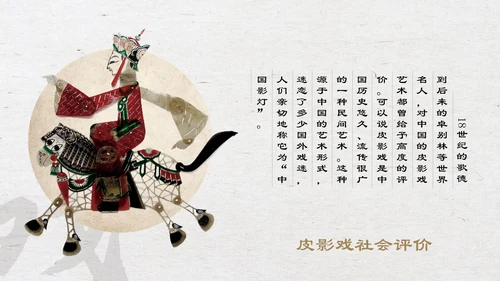 18世纪的歌德
到后来的卓别林等世界
名人，对中国的皮影戏
艺术都曾给予高度的评
价。可以说皮影戏是中
国历史悠久、流传很广
的一种民间艺术。这种
源于中国的艺术形式，
迷恋了多少国外戏迷，
人们亲切地称它为“中
国影灯”。
皮影戏社会评价